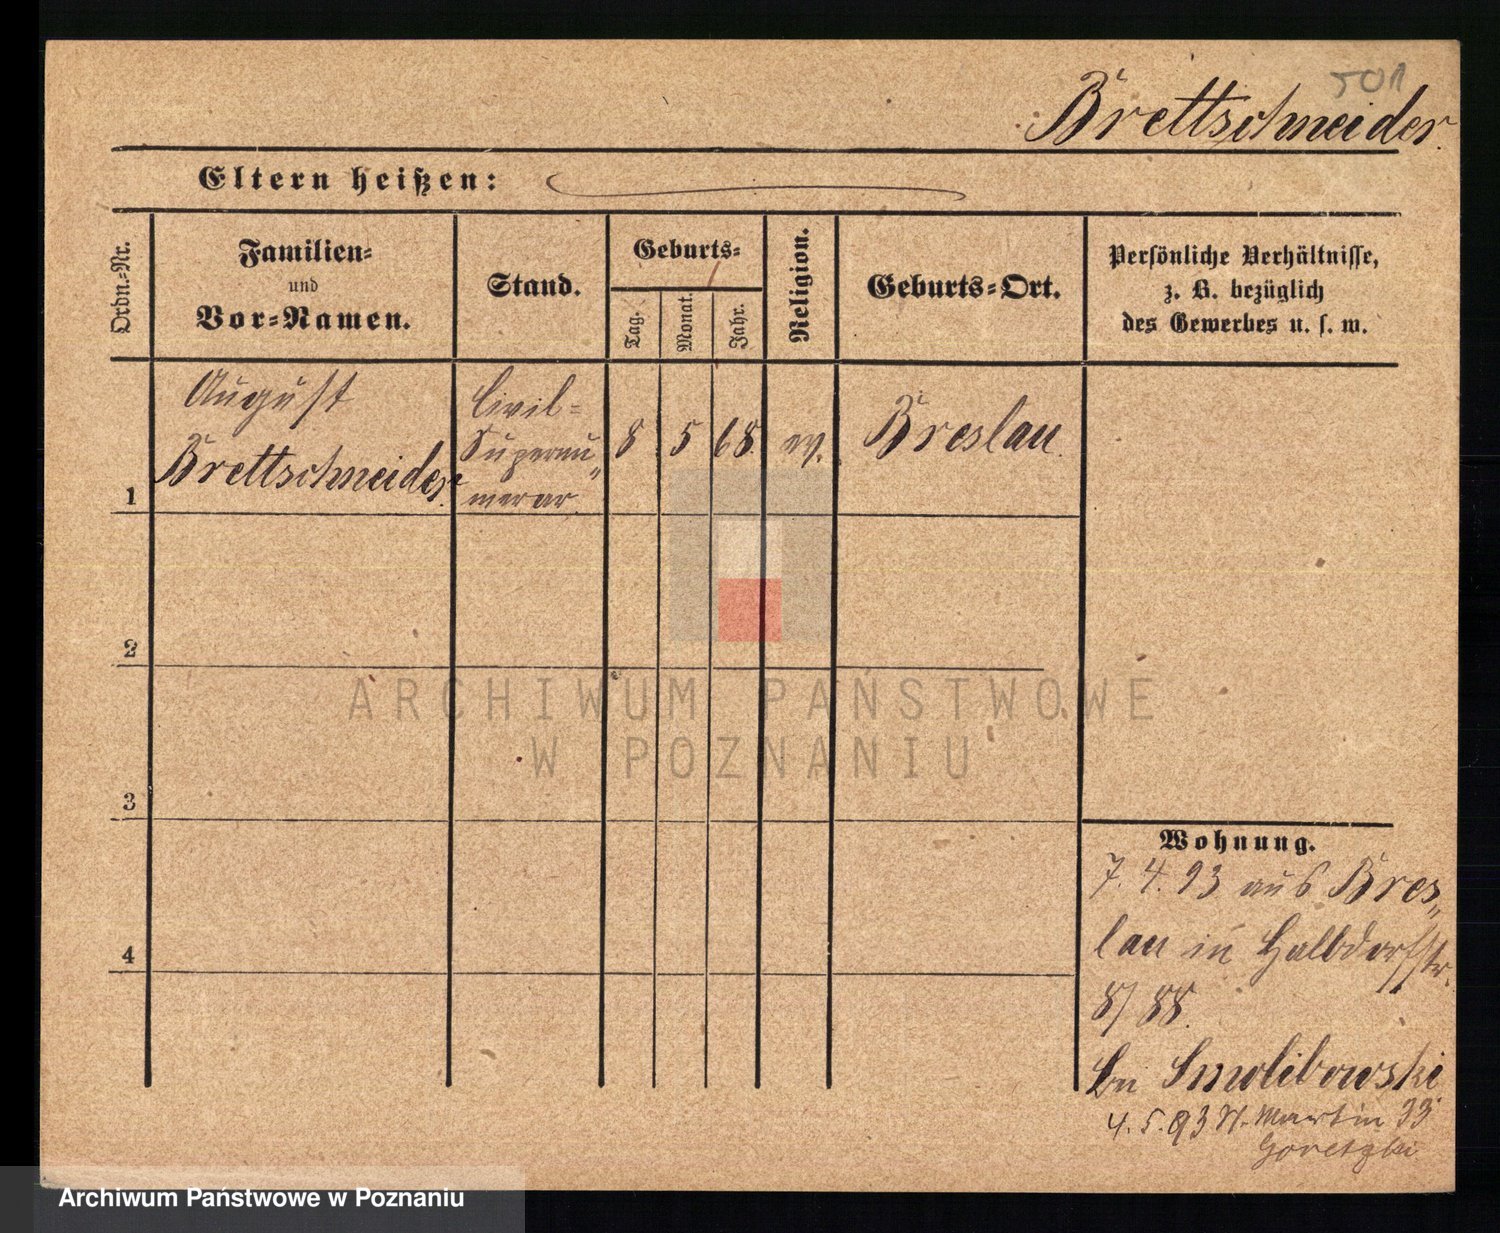 501
Brettschneider.
Eltern heißen:
Ordn.-Nr.
Familien-
und
Vor-Namen.
Stand.
Geburts-
Tag.
Monat.
Jahr.
Religion.
Geburts-Ort.
Persönliche Verhältnisse,
z. B. bezüglich
des Gewerbes u. s. w.
1
August
Brettschneider.
Civil-
Supernu„
merar.
8
5
68.
ev.
Breslau.
2
3
4
Wohnung.
7. 4. 93 aus Bres„
lau in Halbdorfstr.
8/ 88.
bei Smolibowski
4. 5. 93 St. Martin 33
Goretzki
ARCHIWUM PAŃSTWOWE
W POZNANIU
Archiwum Państwowe w Poznaniu